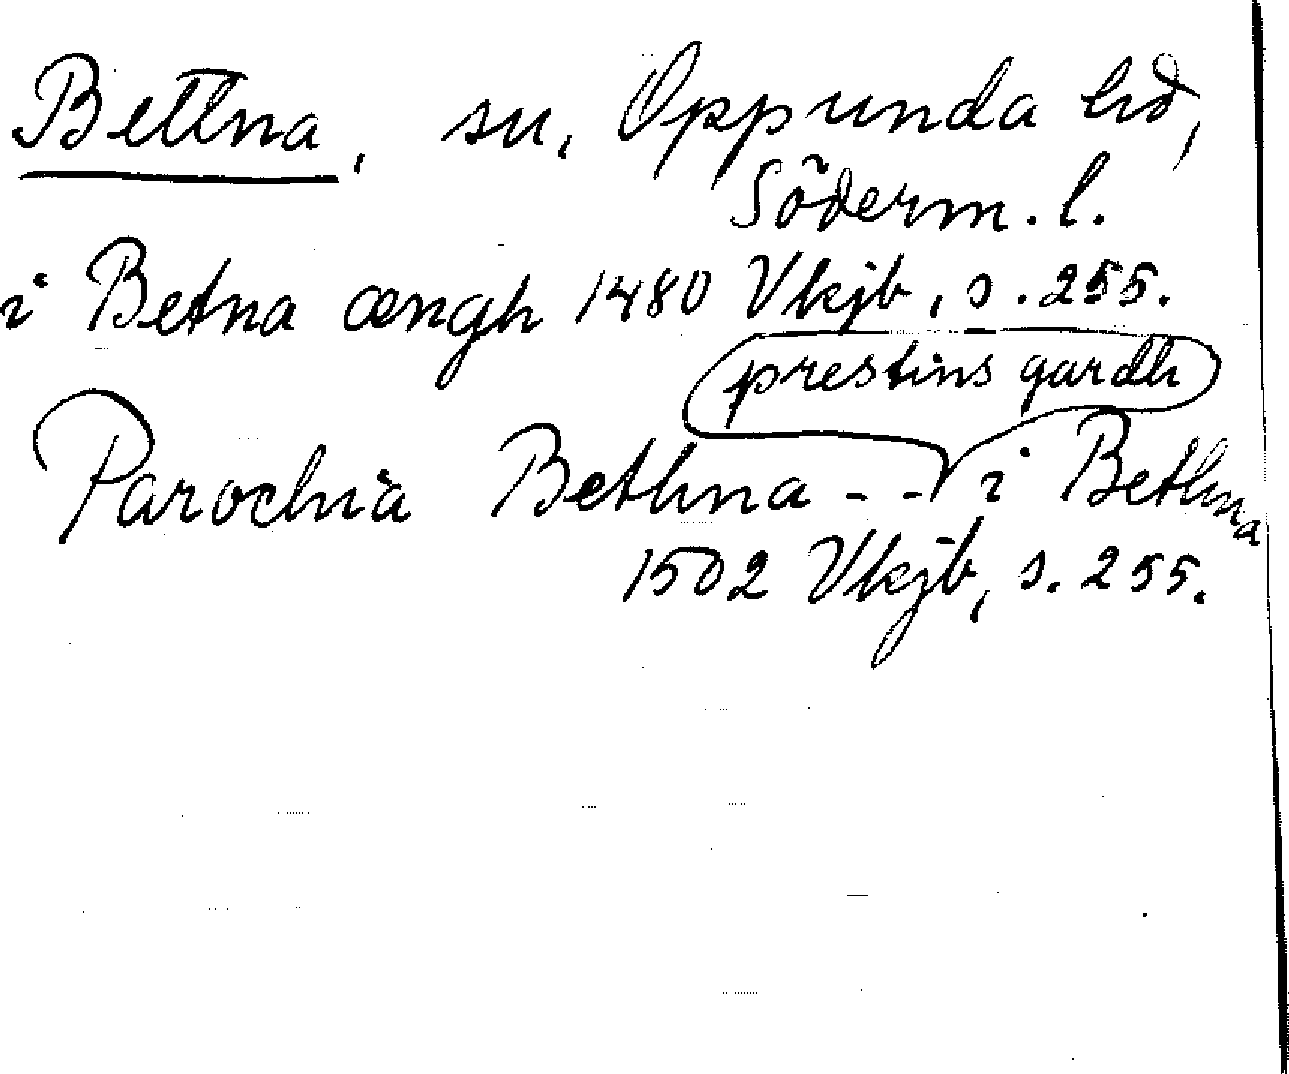 Bettna, sn, Oppunda hd,
Söderm. l.
i Betna ængh 1480 Vkjb, s. 255.
prestins gardh
Parochia Bethna - - i Bethna
1502 Vkjb, s. 255.